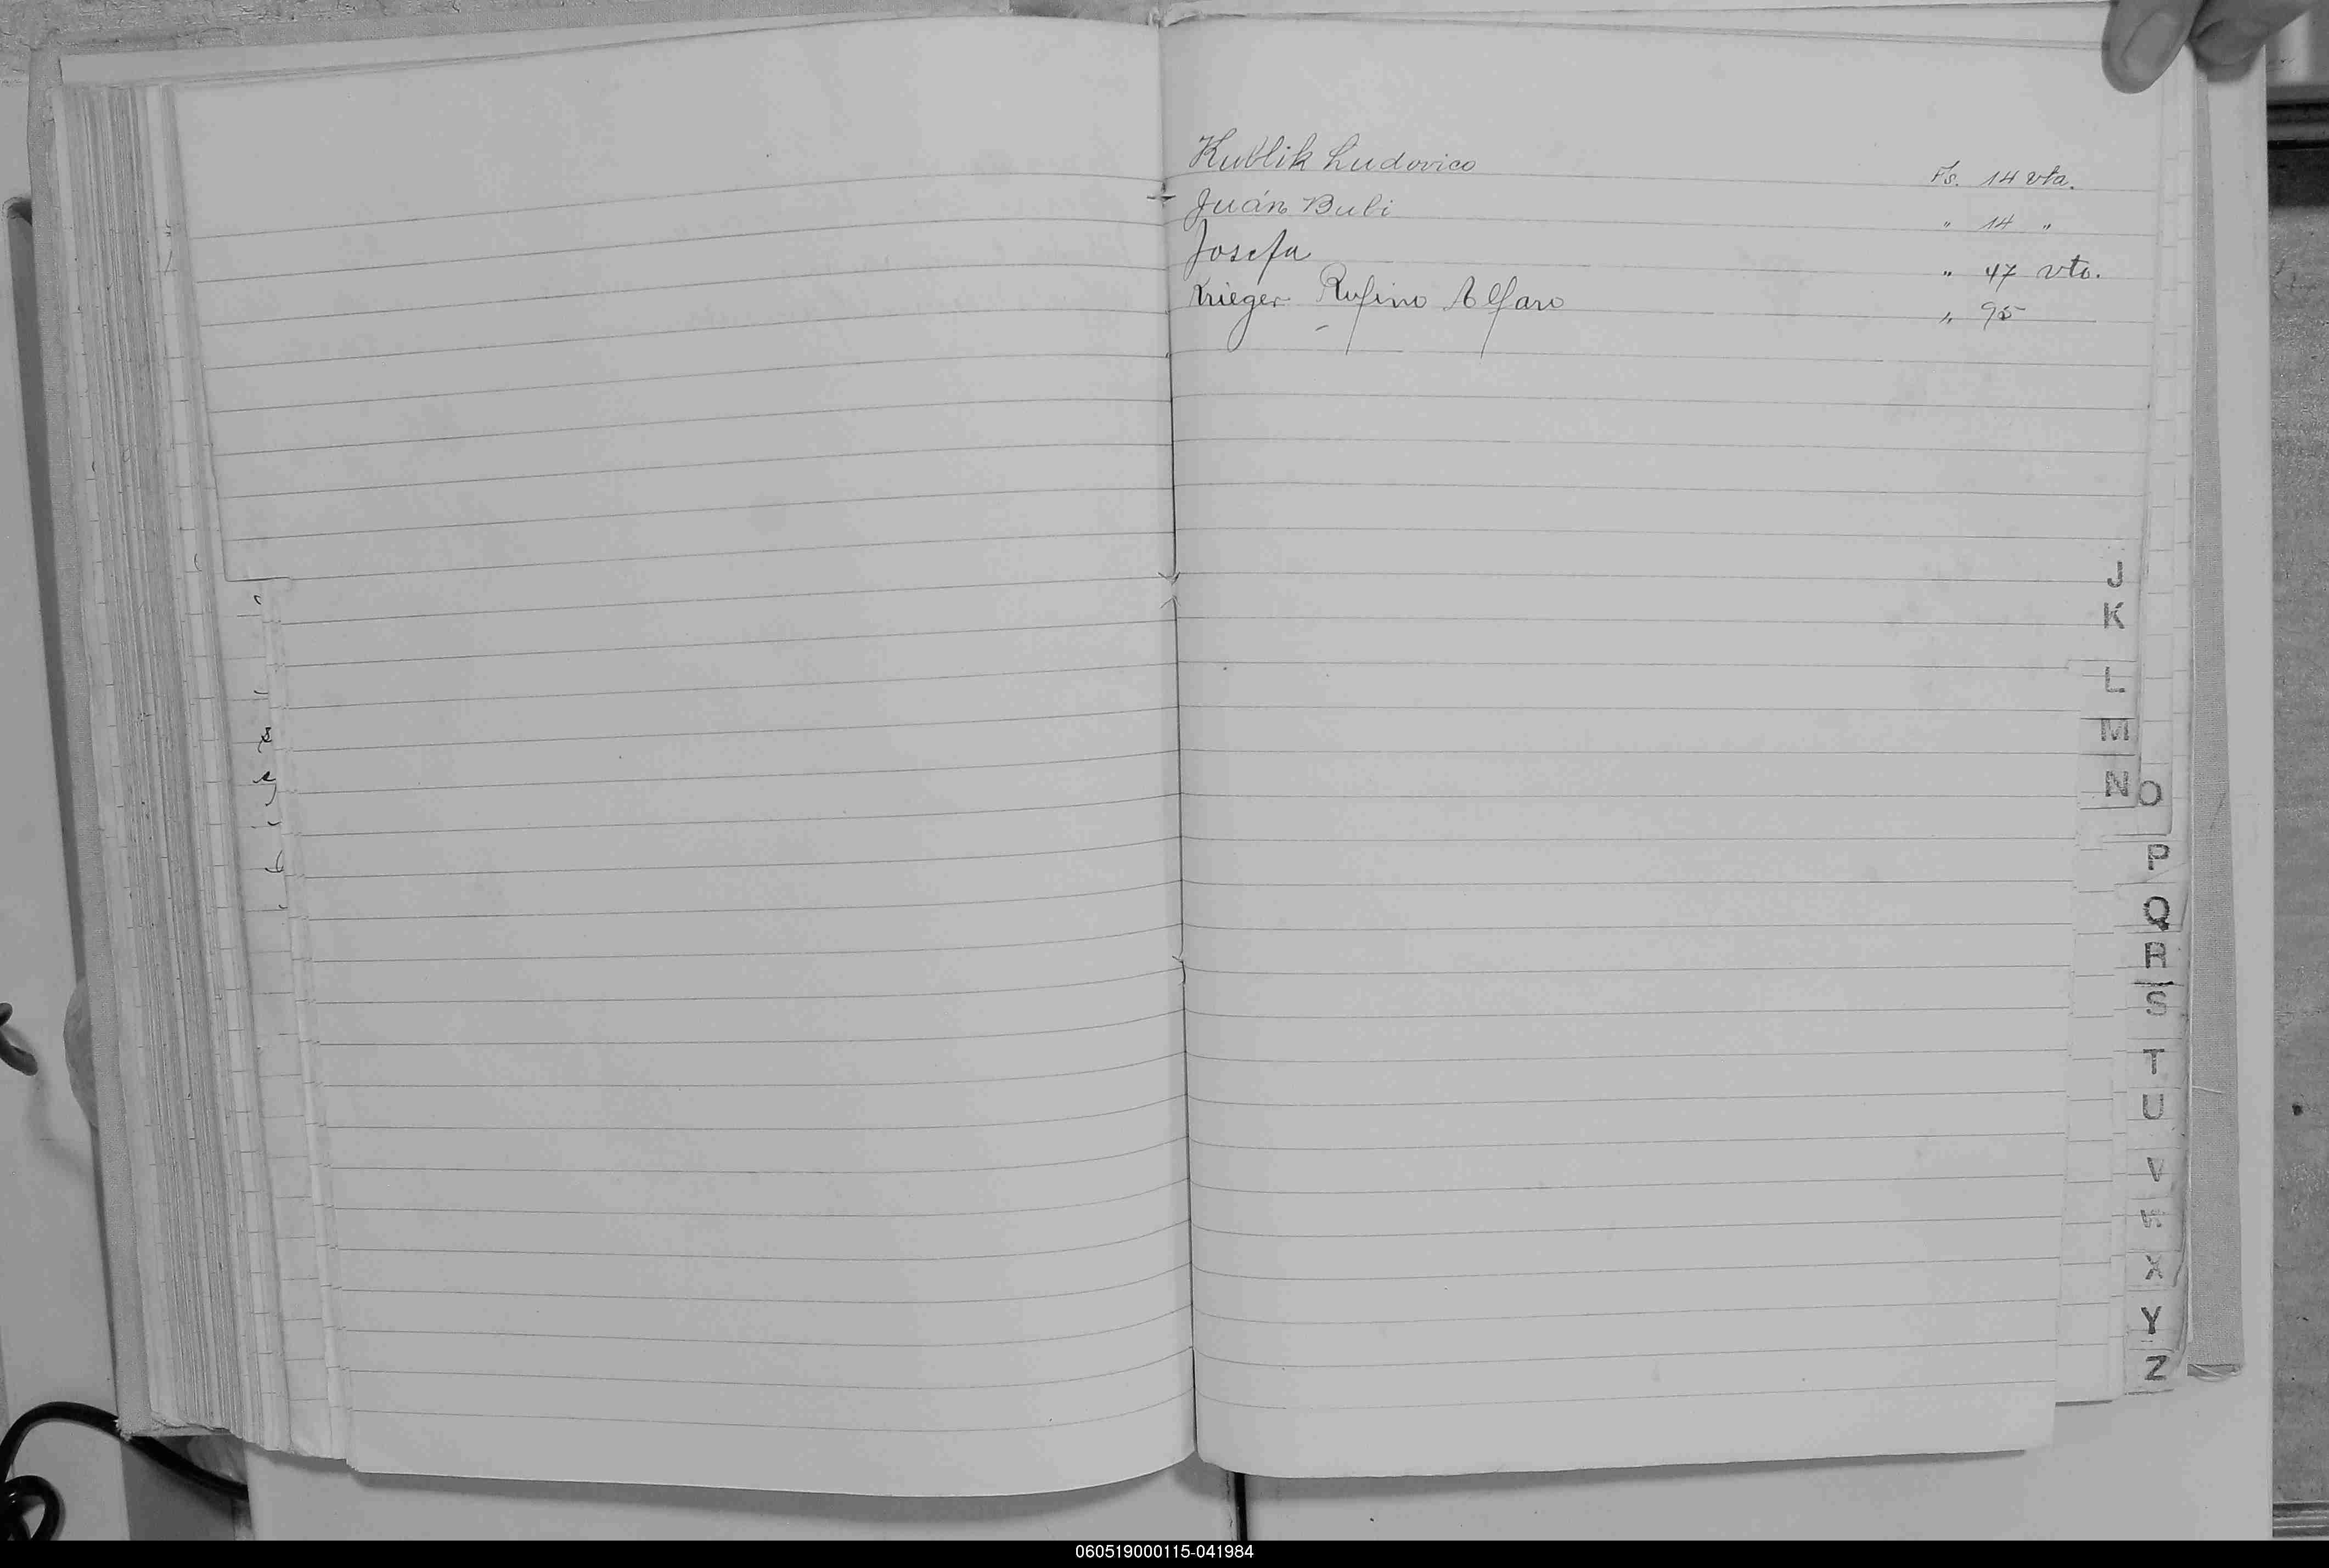 Kublik Ludovico Fs. 14 vta.
Juán Bubi " 14 "
Josefa " 47 vta.
Krieger Rufino Alfaro " 95
J
K
L
M
N
O
P
Q
R
S
T
U
V
X
Y
Z
060519000115-041984